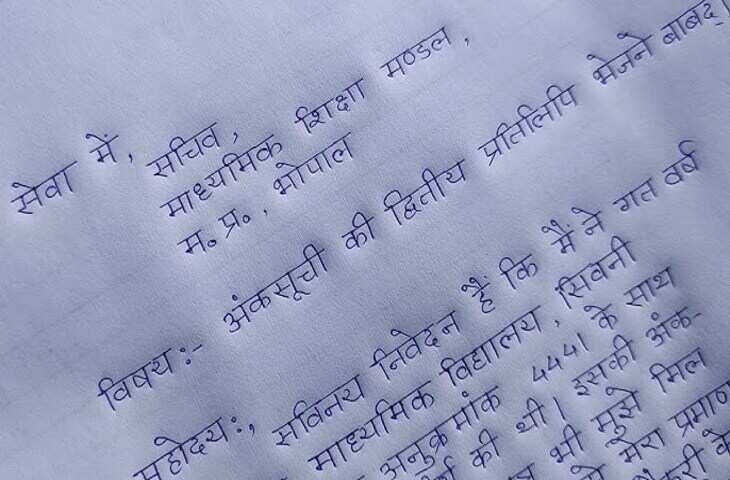 सेवा में, सचिव,
माध्यमिक शिक्षा मण्डल,
म. प्र., भोपाल
विषय:- अंकसूची की द्वितीय प्रतिलिपि भेजने बाबद्।
महोदय:, सविनय निवेदन हैं कि मैं ने गत वर्ष
माध्यमिक विद्यालय, सिवनी
अनुक्रमांक 4441 के साथ
की थी। इसकी अंक-
भी मुझे मिल
मेरा प्रमाण